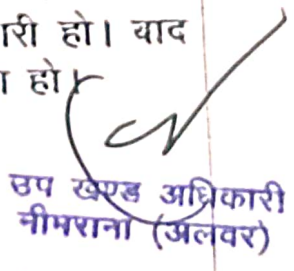 ारी हो। याद
ा हो।
उप खण्ड अधिकारी
नीमराना (अलवर)